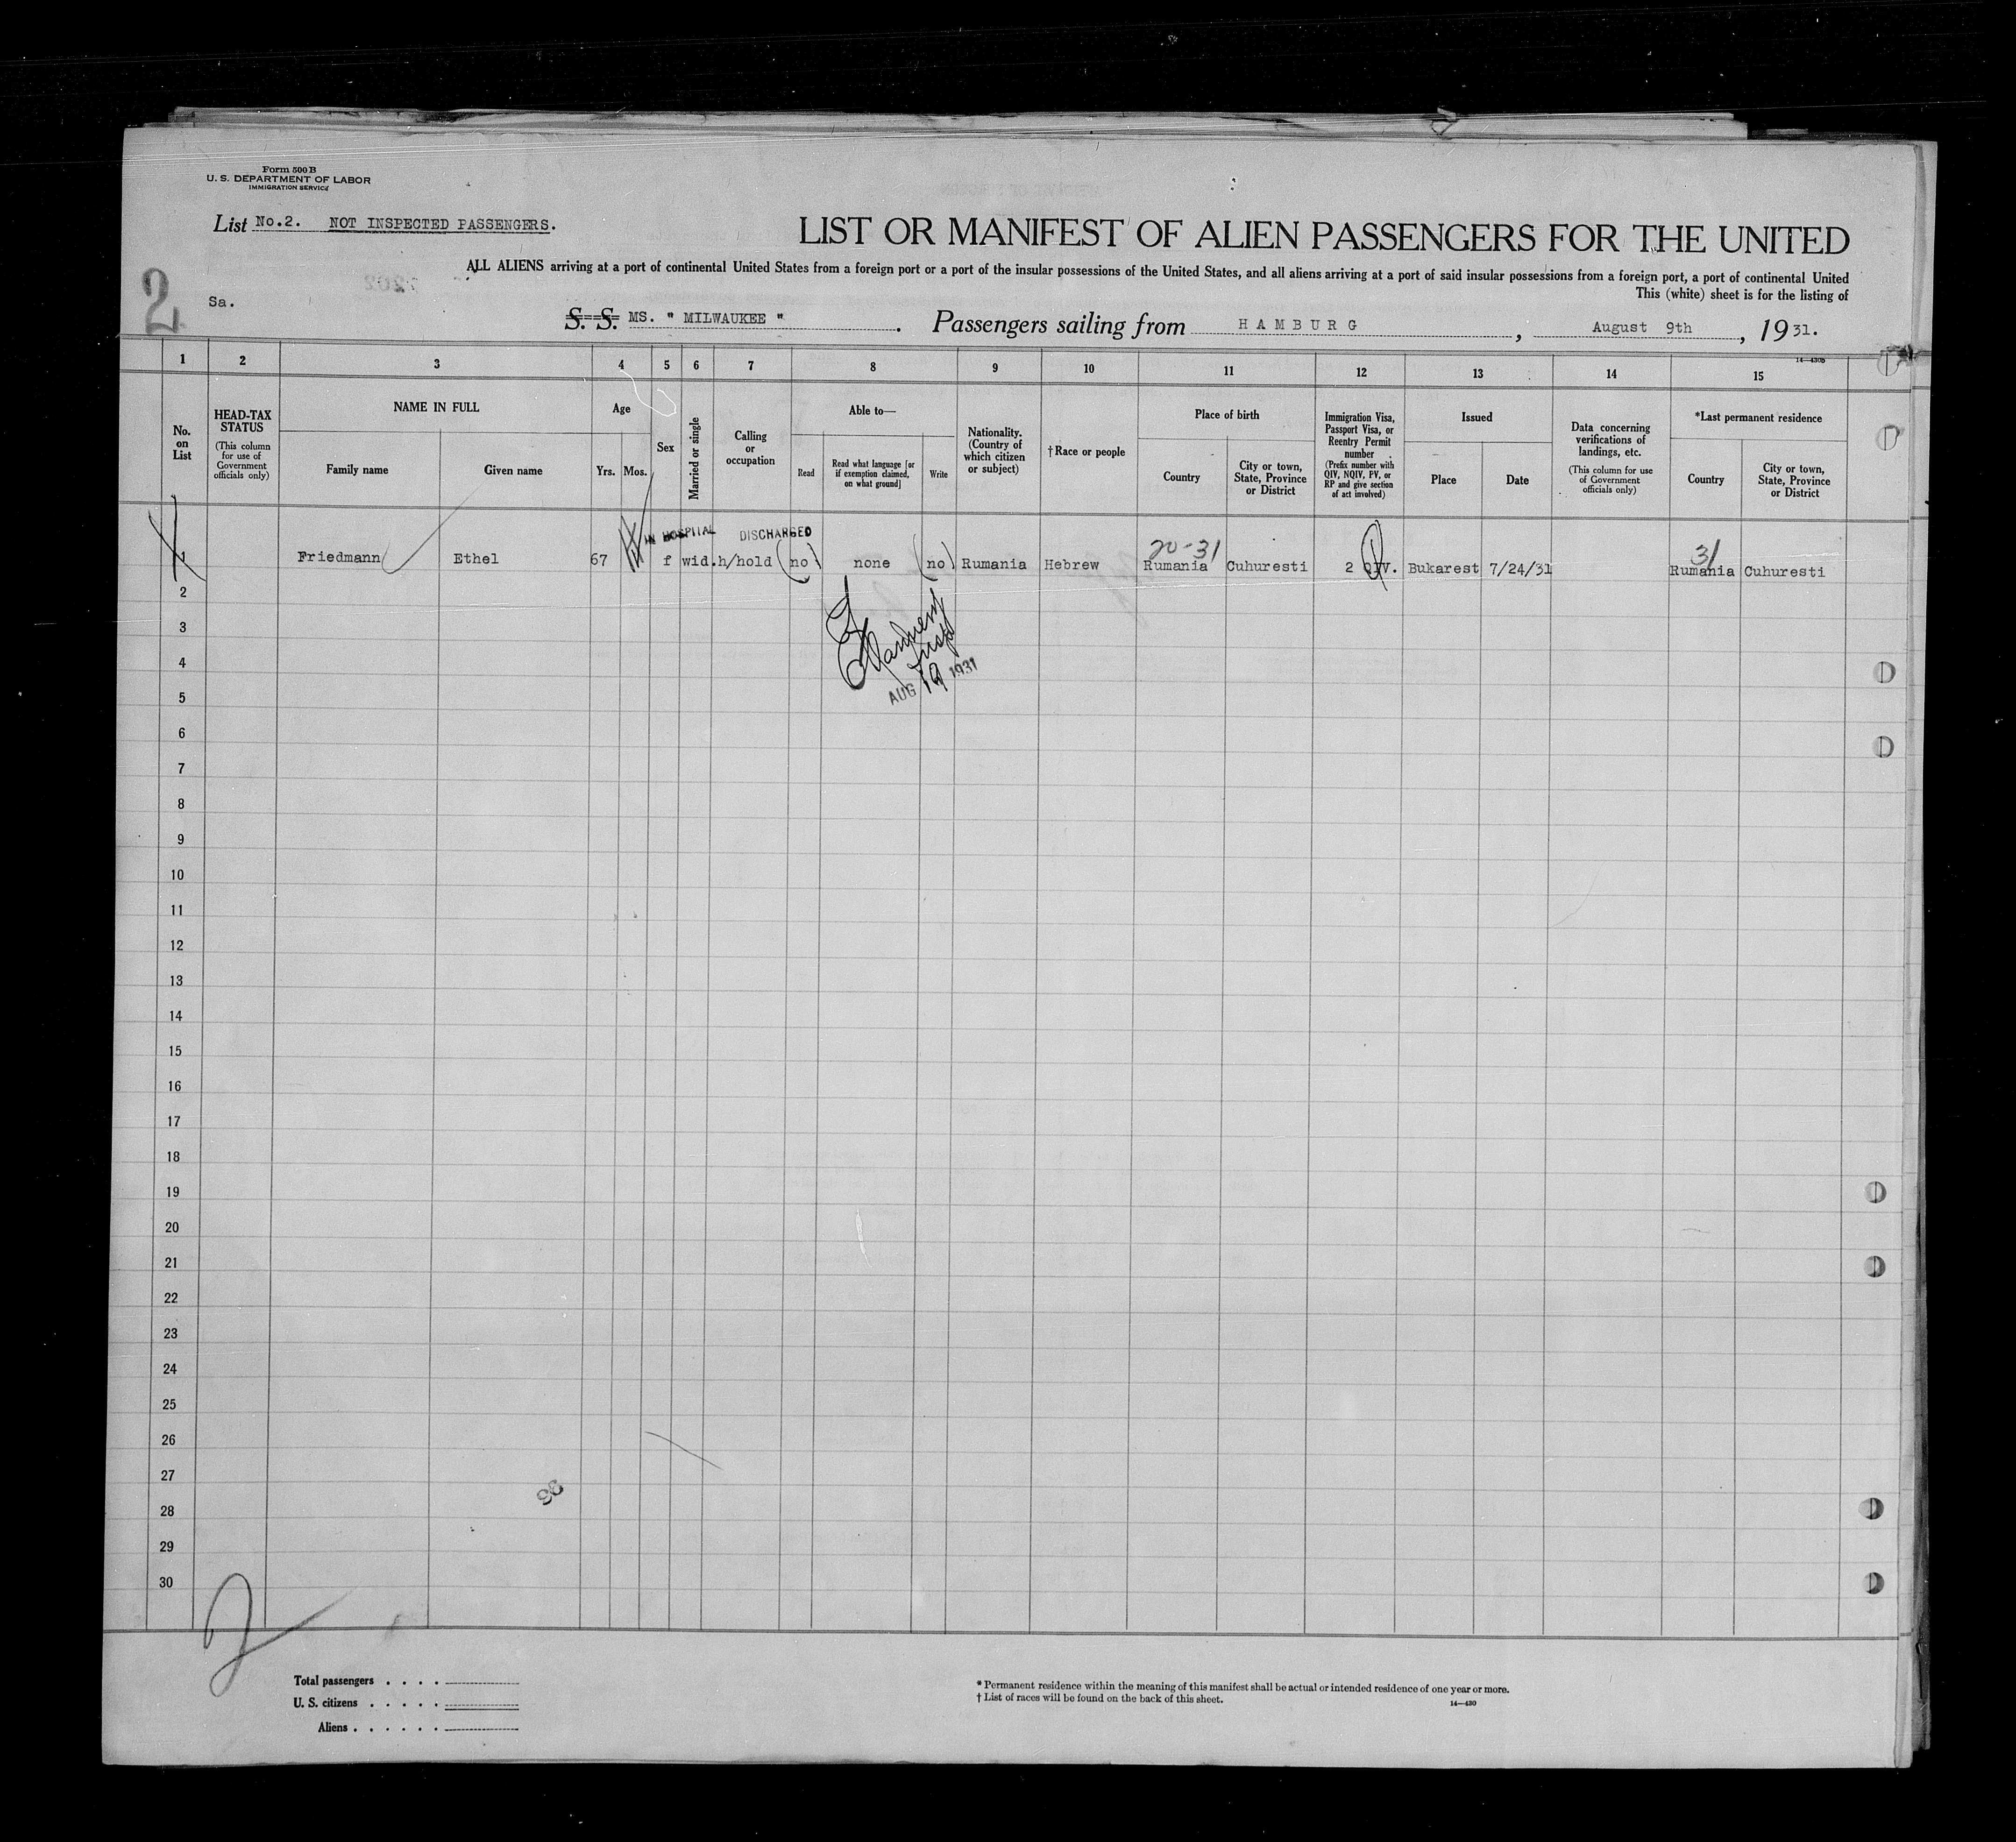 Form 500 B
U. S. DEPARTMENT OF LABOR
IMMIGRATION SERVICE
List No.2. NOT INSPECTED PASSENGERS.
LIST OR MANIFEST OF ALIEN PASSENGERS FOR THE UNITED
ALL ALIENS arriving at a port of continental United States from a foreign port or a port of the insular possessions of the United States, and all aliens arriving at a port of said insular possessions from a foreign port, a port of continental United
This (white) sheet is for the listing of
2
Sa.
S. S. MS. " MILWAUKEE " . Passengers sailing from HAMBURG , August 9th , 1931.
14—430b
1 2 3 4 5 6 7 8 9 10 11 12 13 14 15
No. on List
HEAD-TAX STATUS
(This column for use of Government officials only)
NAME IN FULL
Family name
Given name
Age
Yrs. Mos.
Sex
Married or single
Calling or occupation
Able to—
Read
Read what language [or if exemption claimed, on what ground]
Write
Nationality. (Country of which citizen or subject)
†Race or people
Place of birth
Country
City or town, State, Province or District
Immigration Visa, Passport Visa, or Reentry Permit number
(Prefix number with QIV, NQIV, PV, or RP and give section of act involved)
Issued
Place
Date
Data concerning verifications of landings, etc.
(This column for use of Government officials only)
*Last permanent residence
Country
City or town, State, Province or District
IN HOSPITAL DISCHARGED
20-31
31
1 Friedmann Ethel 67 f wid. h/hold (no) none (no) Rumania Hebrew Rumania Cuhuresti 2 QIV. Bukarest 7/24/31 Rumania Cuhuresti
2
3
4
AUG 19 1931
5
6
7
8
9
10
11
12
13
14
15
16
17
18
19
20
21
22
23
24
25
26
27
28
29
30
2
Total passengers . . . .
U. S. citizens . . . . .
Aliens . . . . . .
* Permanent residence within the meaning of this manifest shall be actual or intended residence of one year or more.
† List of races will be found on the back of this sheet.
14—430